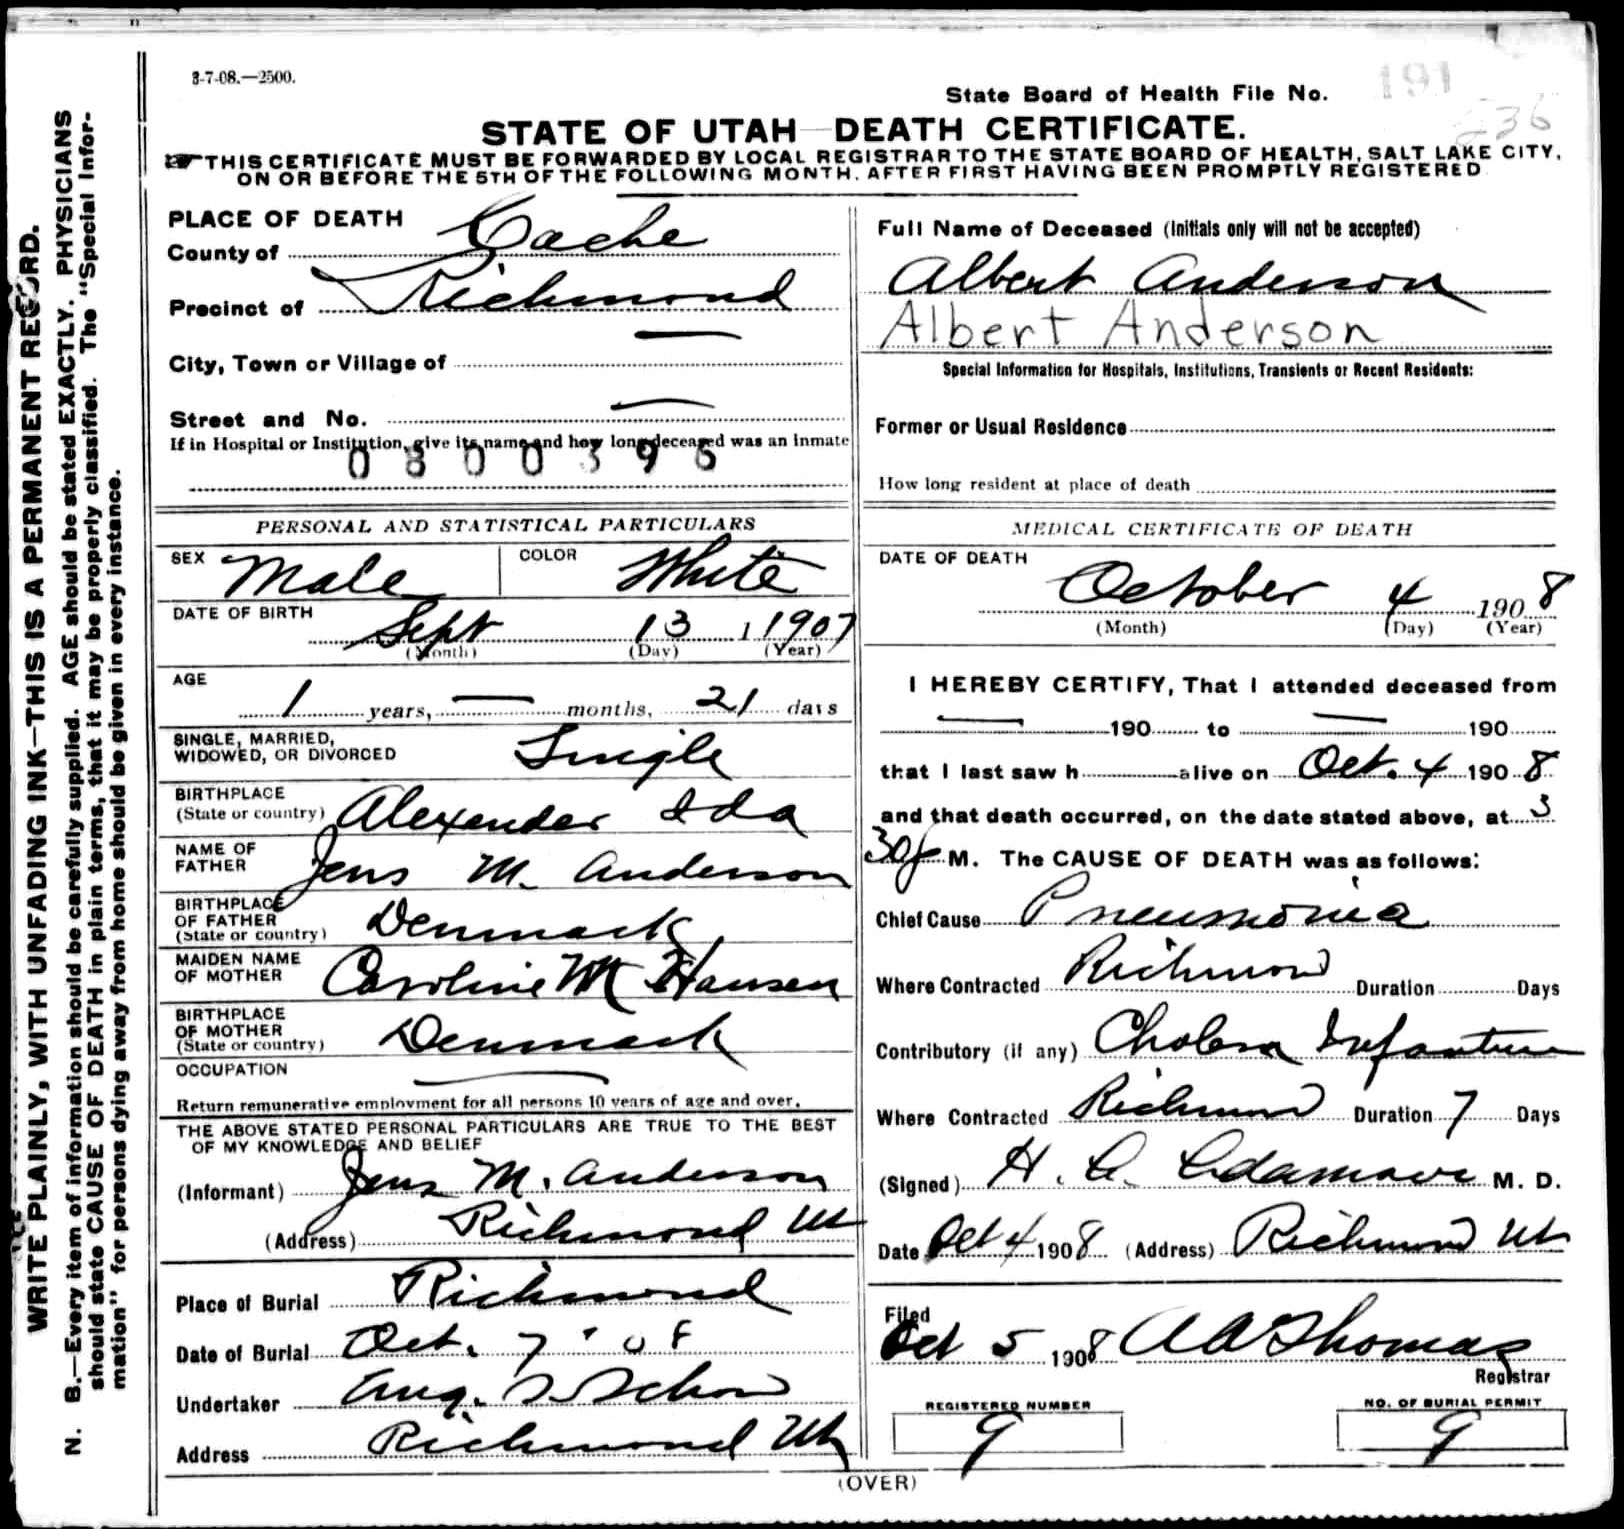 3-7-08.—2500.
State Board of Health File No. 191
236
STATE OF UTAH—DEATH CERTIFICATE.
THIS CERTIFICATE MUST BE FORWARDED BY LOCAL REGISTRAR TO THE STATE BOARD OF HEALTH, SALT LAKE CITY,
ON OR BEFORE THE 5TH OF THE FOLLOWING MONTH. AFTER FIRST HAVING BEEN PROMPTLY REGISTERED
WRITE PLAINLY, WITH UNFADING INK—THIS IS A PERMANENT RECORD.
N. B.—Every item of information should be carefully supplied. AGE should be stated EXACTLY. PHYSICIANS
should state CAUSE OF DEATH in plain terms, that it may be properly classified. The "Special Infor-
mation" for persons dying away from home should be given in every instance.
PLACE OF DEATH
County of Cache
Precinct of Richmond
City, Town or Village of —
Street and No. —
If in Hospital or Institution, give its name and how long deceased was an inmate
0800396
PERSONAL AND STATISTICAL PARTICULARS
SEX Male COLOR White
DATE OF BIRTH
Sept 13 1 1907
(Month) (Day) (Year)
AGE
1 years, — months, 21 days
SINGLE, MARRIED,
WIDOWED, OR DIVORCED Single
BIRTHPLACE
(State or country) Alexender Ida
NAME OF
FATHER Jens M. Anderson
BIRTHPLACE
OF FATHER
(State or country) Denmark
MAIDEN NAME
OF MOTHER Caroline M Hansen
BIRTHPLACE
OF MOTHER
(State or country) Denmark
OCCUPATION —
Return remunerative employment for all persons 10 years of age and over.
THE ABOVE STATED PERSONAL PARTICULARS ARE TRUE TO THE BEST
OF MY KNOWLEDGE AND BELIEF
(Informant) Jens M. Anderson
(Address) Richmond Ut
Place of Burial Richmond
Date of Burial Oct. 7 '08
Undertaker Aug.
Address Richmond Ut
Full Name of Deceased (Initials only will not be accepted)
Albert Anderson
Albert Anderson
Special Information for Hospitals, Institutions, Transients or Recent Residents:
Former or Usual Residence
How long resident at place of death
MEDICAL CERTIFICATE OF DEATH
DATE OF DEATH
October 4 1908
(Month) (Day) (Year)
I HEREBY CERTIFY, That I attended deceased from
— 190 to — 190
that I last saw h alive on Oct. 4 1908
and that death occurred, on the date stated above, at 3
30 p M. The CAUSE OF DEATH was as follows:
Chief Cause Pneumonia
Where Contracted Richmond Duration Days
Contributory (if any) Cholera Infantum
Where Contracted Richmond Duration 7 Days
(Signed) H. M. D.
Date Oct 4 1908 (Address) Richmond Ut
Filed
Oct 5 1908 A A Thomas
Registrar
REGISTERED NUMBER
9
NO. OF BURIAL PERMIT
9
(OVER)